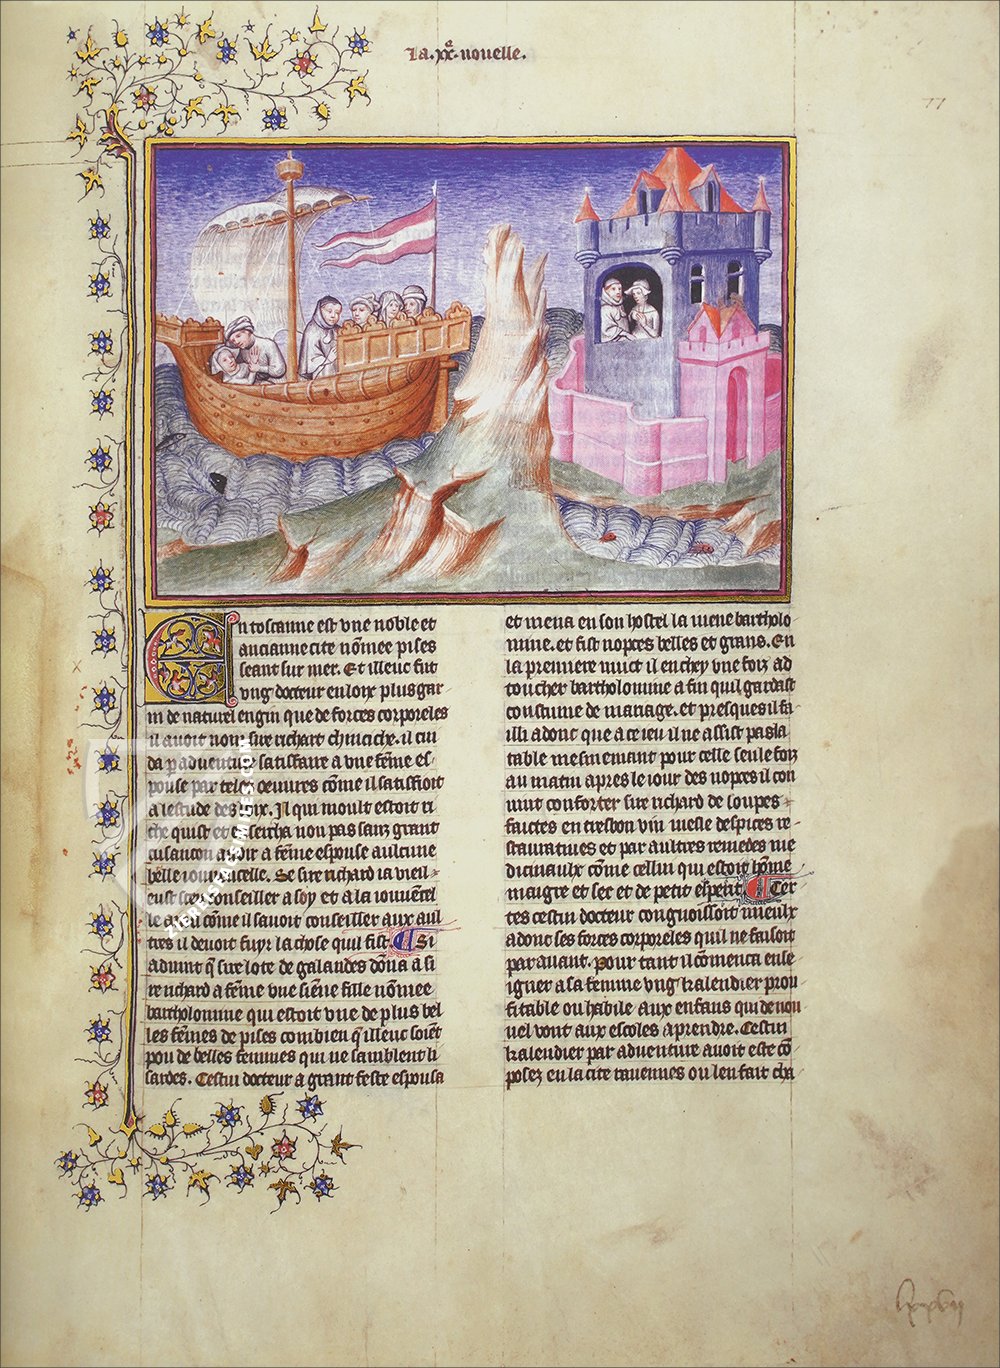 La .xxe. nouelle.
77
En toscanne est vne noble et
ancianne cite nõmee pises
seant sur mer. Et illeuc fut
vng docteur en loix plus gar-
ni de naturel engin que de forces corporeles
il auoit nom sire richart chinciche. il cui
da p aduenture satisfaire a vne fẽme es-
pouse par teles oeuures cõme il satisfioit
a lestude des loix. Il qui moult estoit ri
che quist et encercha non pas sanz grant
cusancon auoir a fẽme espouse aulcune
belle iouuencelle. Se sire richard ia vieil-
eust sceu conseiller a soy et a la iouuencel
le ainsi cõme il sauoit conseiller aux aul
tres il deuoit fuyr la chose quil fist. Si
aduint q̃ sire lote de galandes dõna a si
re richard a fẽme vne sienne fille nõmee
bartholomine qui estoit vne de plus bel
les fẽmes de pises combien q̃ illeuc soiẽt
pou de belles femmes qui ne samblent li
sardes. Cestui docteur a grant feste espousa
et mena en son hostel la mene bartholo
mine. et fist nopces belles et grans. En
la premiere nuict il enchey vne foiz ad
toucher bartholomine a fin quil gardast
coustume de mariage. et presques il fa-
illi adonc que a ce ieu il ne assist pas la
table mesmemant pour celle seule foiz
au matin apres le iour des nopces il con
uint conforter sire richard de soupes
faictes en tresbon vin mesle despices re-
stauratiues et par aultres remedes me
dicinaulx cõme cellui qui estoit hõme
maigre et sec et de petit esperit. Cer-
tes cestui docteur congnoissoit mieulx
adonc ses forces corporeles quil ne faisoit
parauant. Pour tant il cõmenca ense-
igner a sa femme vng kalendier prou
fitable ou habile aux enfans qui de nou
uel vont aux escoles aprendre. Cestui
kalendier par aduenture auoit este cõ-
posez en la cite rauennes ou len fait cha
ziereisfacsimiles.com